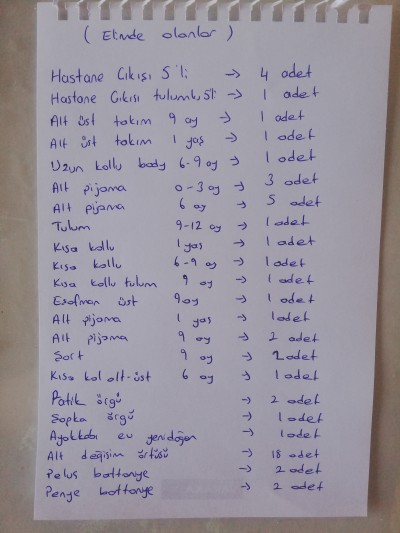 ( Elimde olanlar )
Hastane Cıkışı 5'li -> 4 adet
Hastane Cıkısı tulumlu 5li -> 1 adet
Alt üst takım 9 ay -> 1 adet
Alt üst takım 1 yaş -> 1 adet
Uzun kollu body 6-9 ay -> 1 adet
Alt pijama 0-3 ay -> 3 adet
Alt pijama 6 ay -> 5 adet
Tulum 9-12 ay -> 1 adet
Kısa kollu 1 yaş -> 1 adet
Kısa kollu 6-9 ay -> 1 adet
Kısa kollu tulum 9 ay -> 1 adet
Eşofman üst 9 ay -> 1 adet
Alt pijama 1 yas -> 1 adet
Alt pijama 9 ay -> 2 adet
Şort 9 ay -> 2 adet
Kısa kol alt-üst 6 ay -> 1 adet
Patik örgü -> 2 adet
Şapka örgü -> 1 adet
Ayakkabı ev yenidoğan -> 1 adet
Alt değişim örtüsü -> 18 adet
Pelus battanye -> 2 adet
Penye battanye -> 2 adet